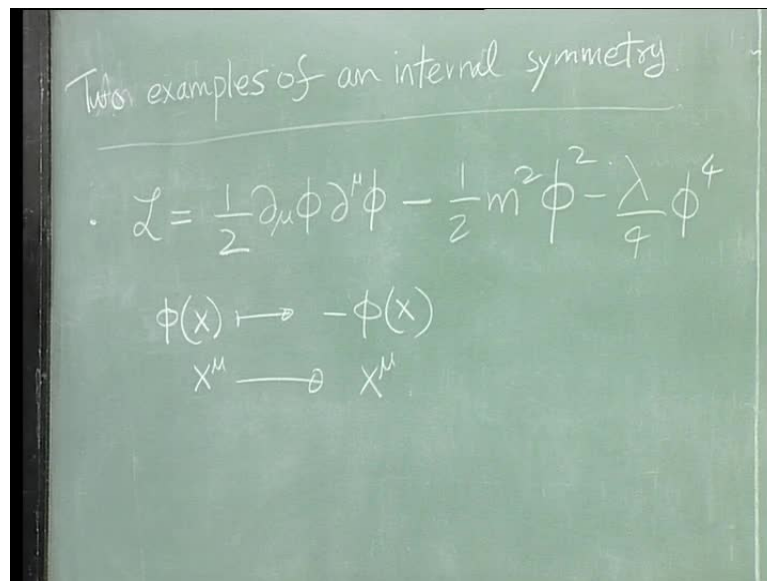 Two examples of an internal symmetry
. ℒ = 1/2 ∂_μ ϕ ∂^μ ϕ − 1/2 m² ϕ² − λ/4 ϕ⁴
ϕ(x) ↦ −ϕ(x)
x^μ → x^μ